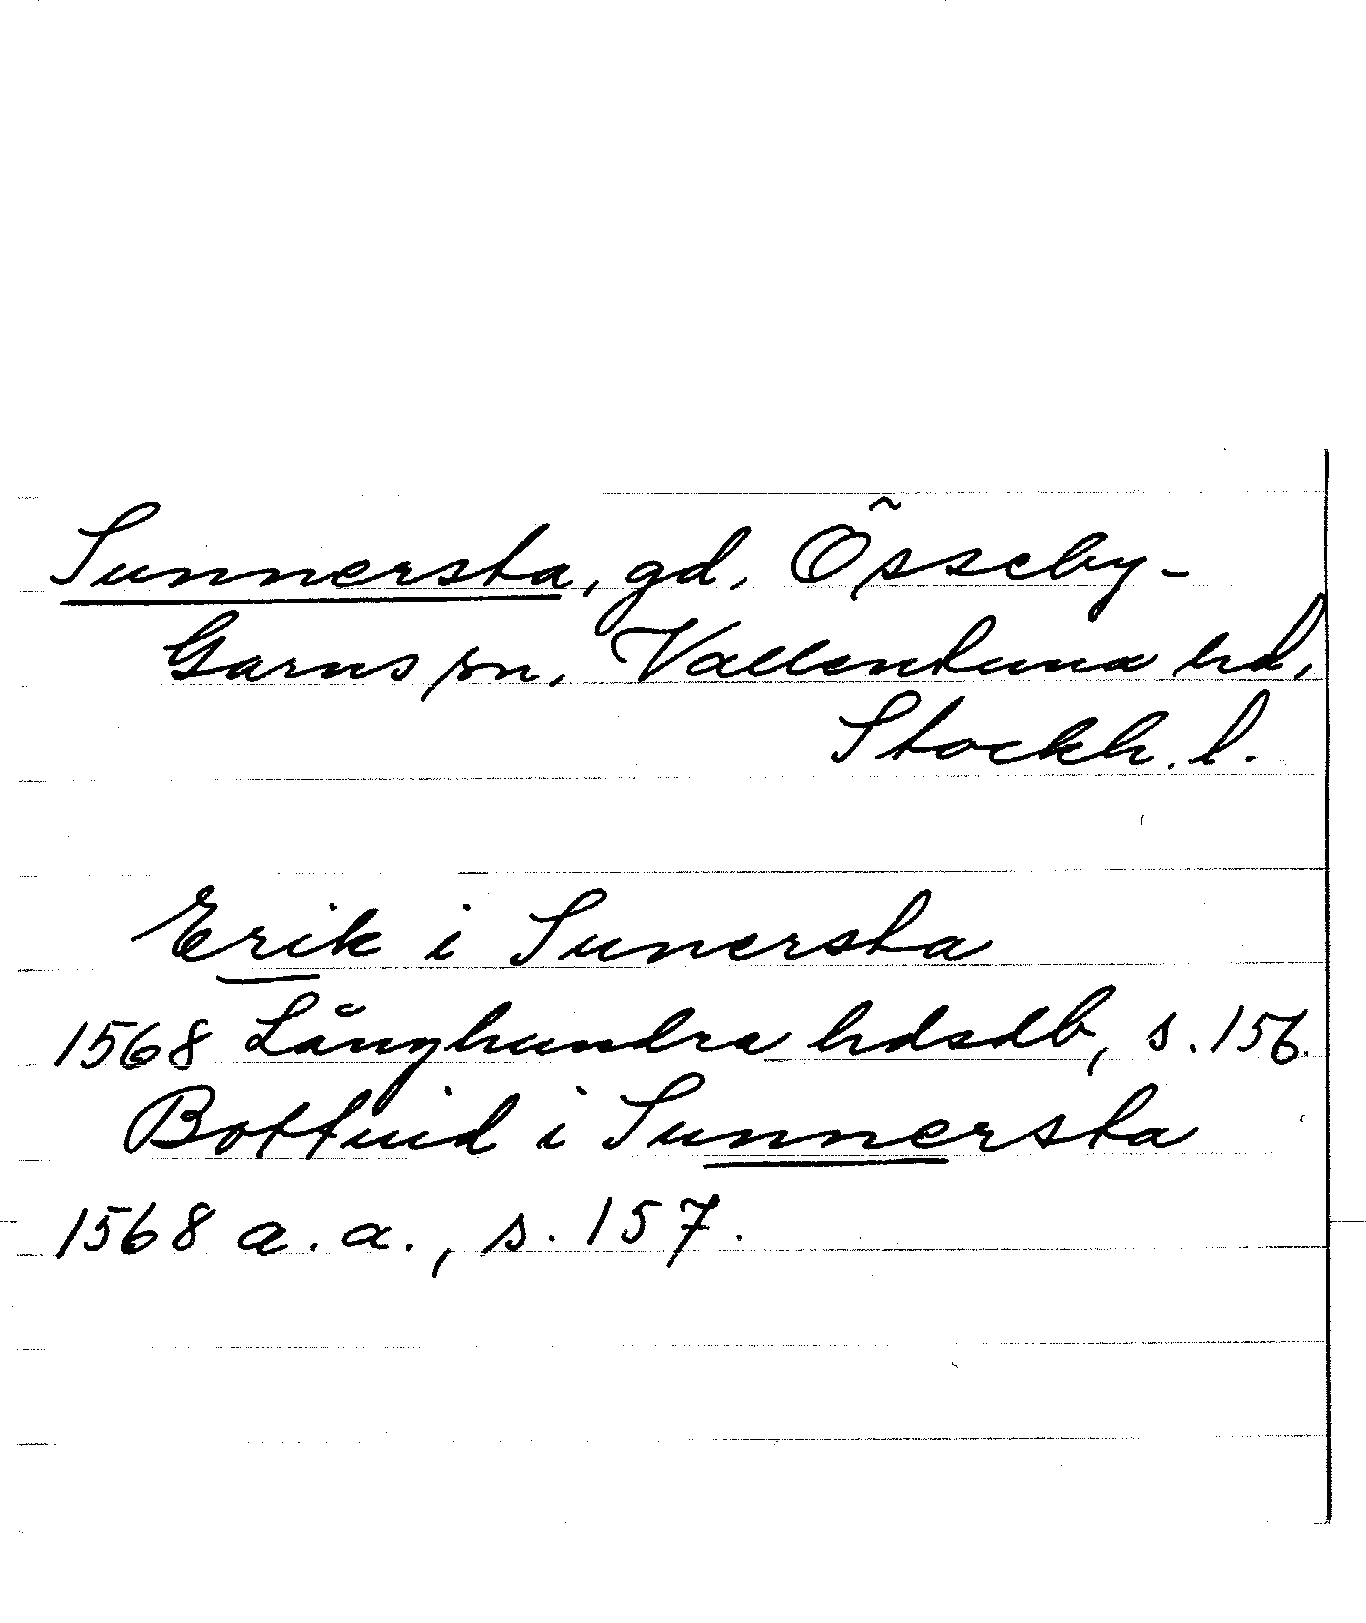 Sunnersta, gd, Össeby-
Garns sn, Vallentuna hd,
Stockh. l.
Erik i Sunersta
1568 Långhundra hdsdb, s. 156.
Bottuid i Sunnersta
1568 a. a., s. 157.